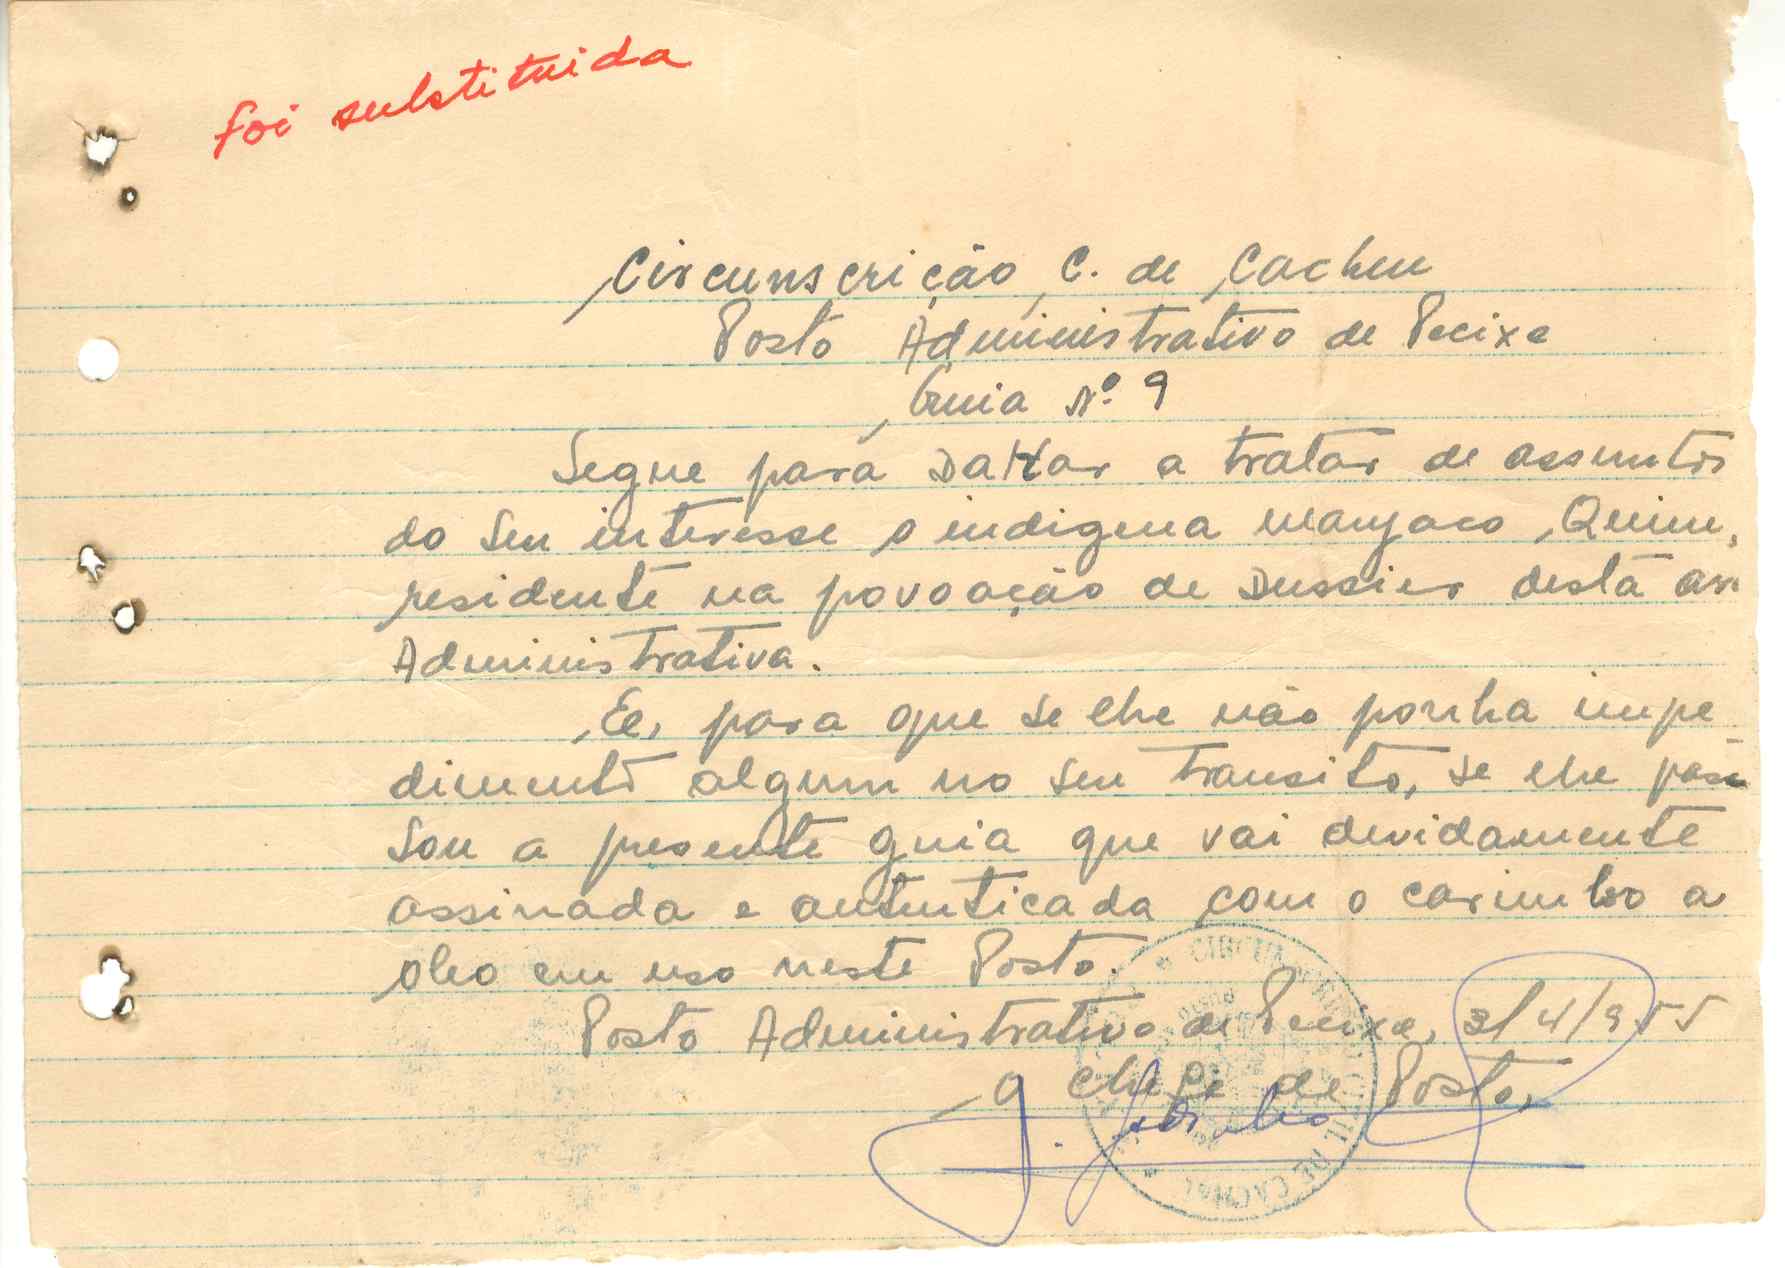 foi substituida
Circunscrição C. de Cacheu
Posto Administrativo de Pecixe
Guia Nº 9
Segue para Dakar a tratar de assuntos
do seu interesse o indigena manjaco, Quim,
residente na povoação de Dussier desta
Administrativa.
E, para que se lhe não ponha impe
dimento algum no seu transito, se lhe pas
sou a presente guia que vai devidamente
assinada e autenticada com o carimbo a
oleo em uso neste Posto.
Posto Administrativo de Pecixe, 3/4/955
O Chefe de Posto,